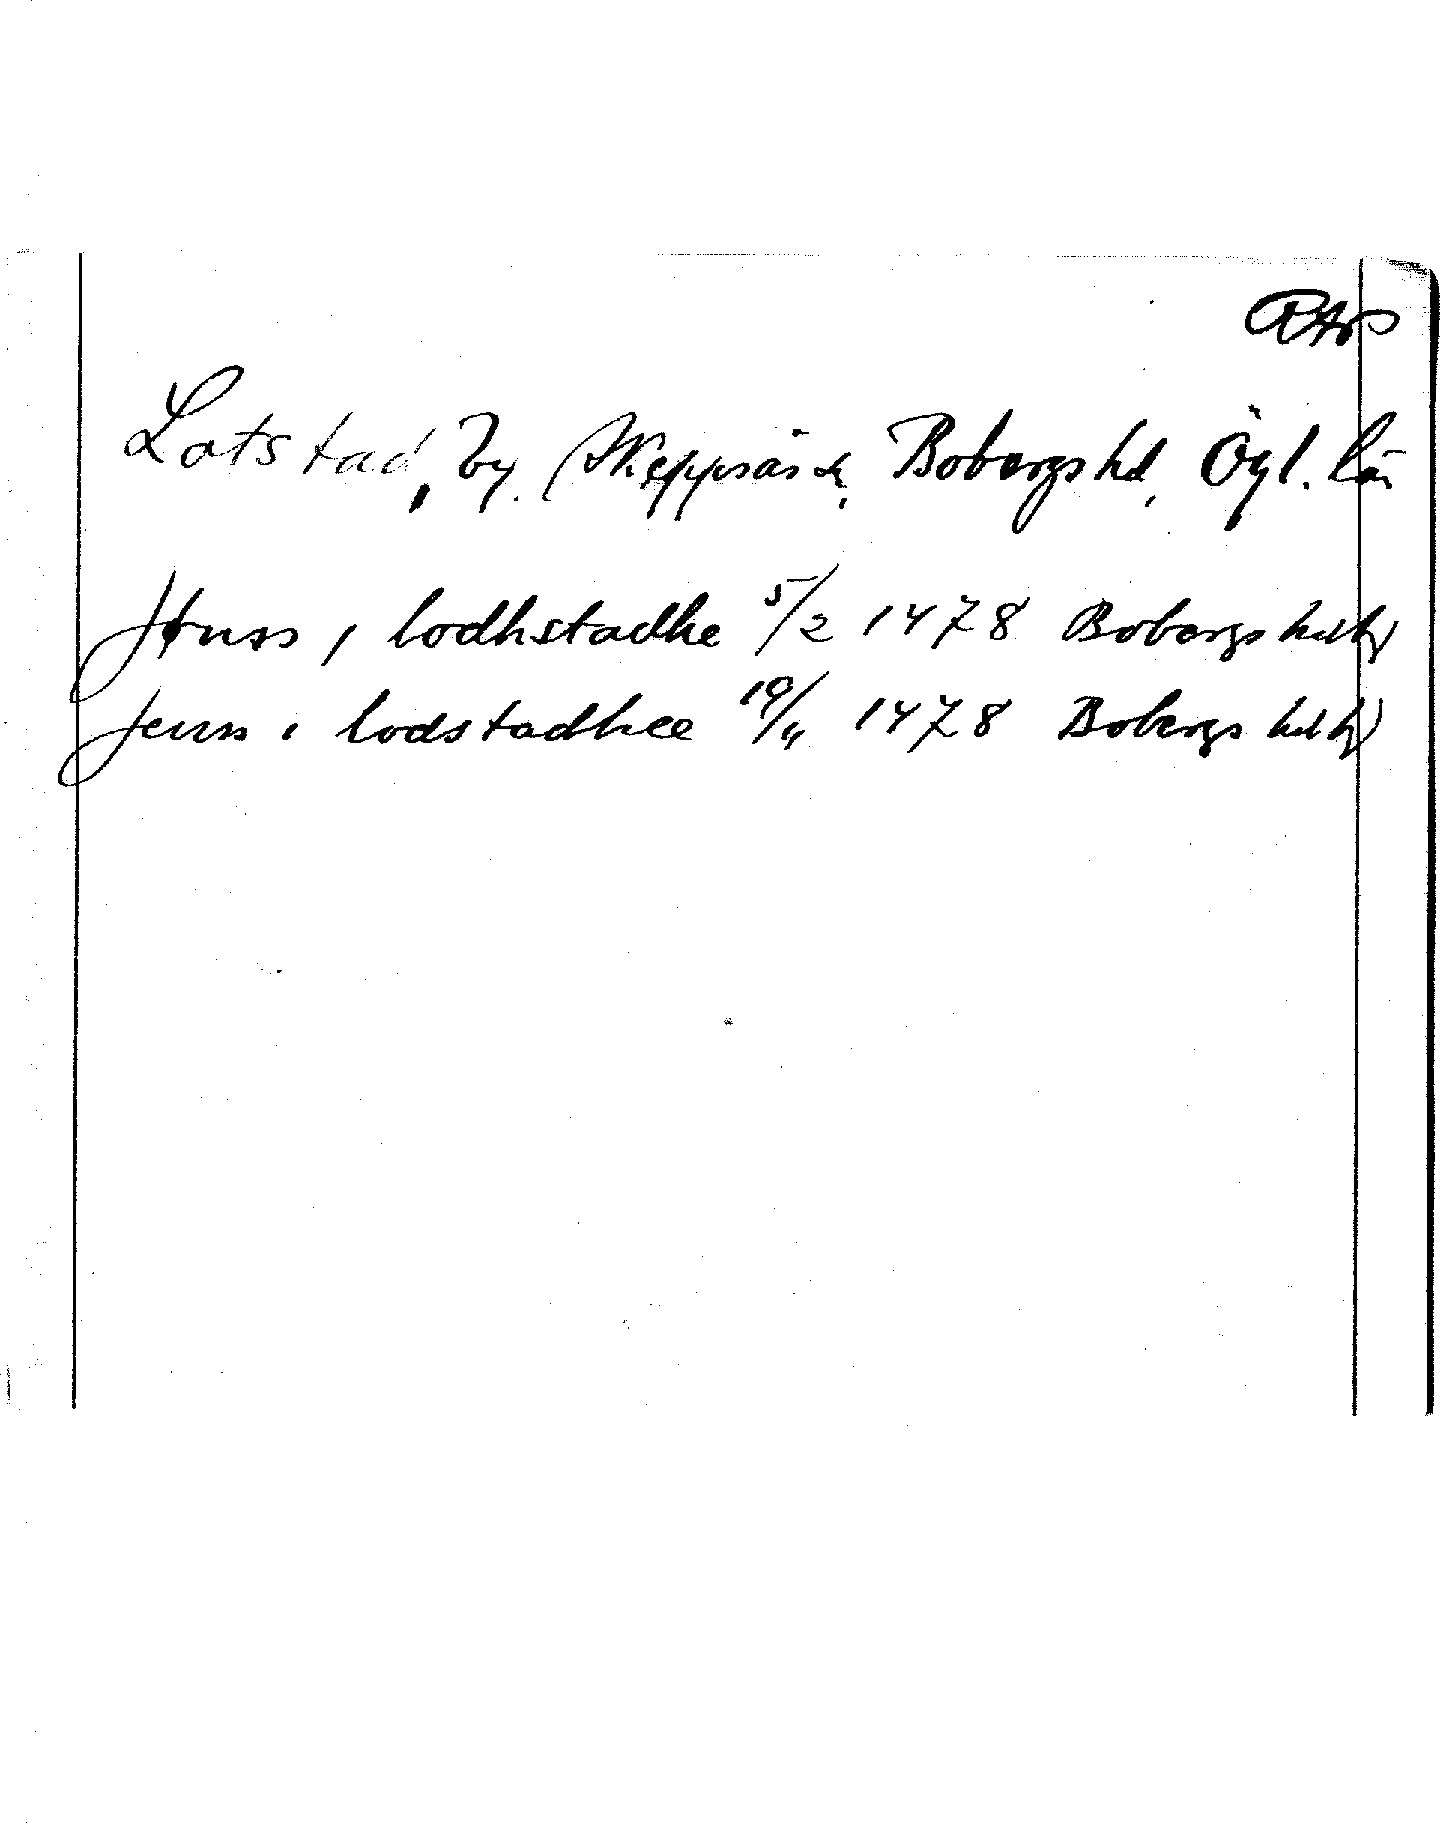 RAp
Lotstad, by. Skeppsås sn, Bobergs hd, Ögl. län
Jönss i lodhstadhe 5/2 1478 Bobergs hd
Jenss i lodstadhee 19/11 1478 Bobergs hd